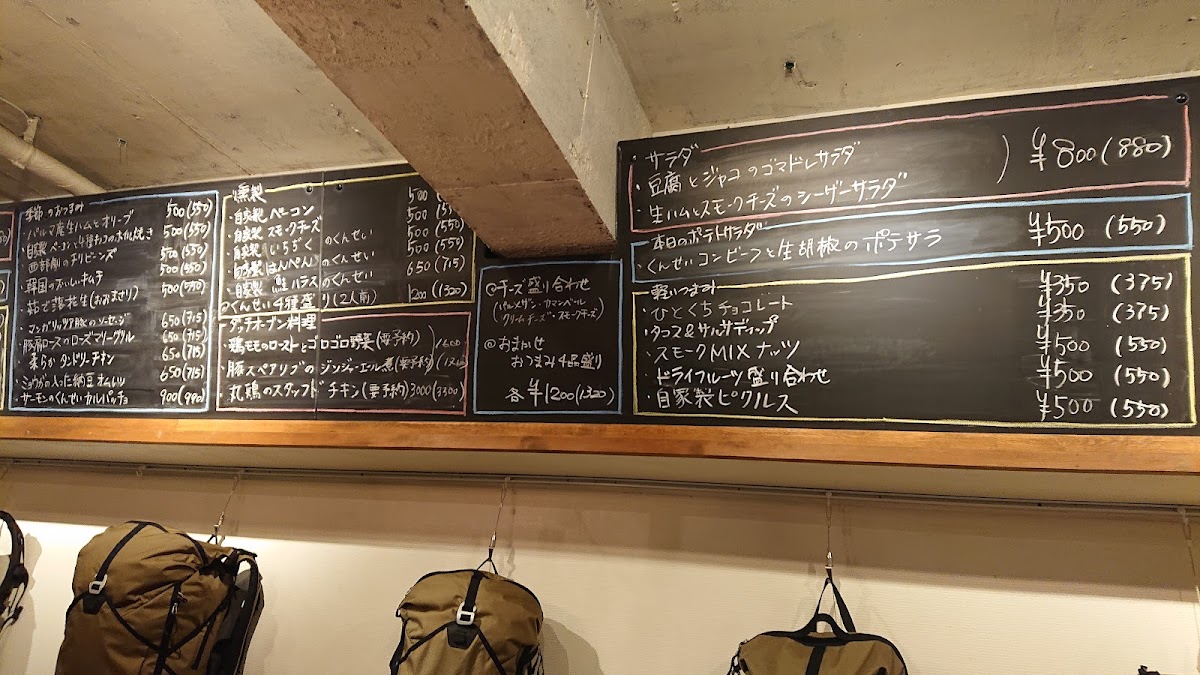 季節のおつまみ
・パルマ産生ハムとオリーブ 500(550)
・自家製ベーコンと4種キノコのホイル焼き 500(550)
・西部劇のチリビーンズ 500(550)
・韓国のおいしいキムチ 500(550)
・茹で落花生(おおまさり) 500(550)
・マンガリッツァ豚のソーセージ 650(715)
・豚肩ロースのローズマリーグリル 650(715)
・柔らかタンドリーチキン 650(715)
・ミョウガの入った納豆オムレツ 650(715)
・サーモンのくんせいカルパッチョ 900(990)
燻製
・自家製 ベーコン 500
・自家製 スモークチーズ 500(550)
・自家製 いちぢくのくんせい 500(550)
・自家製 はんぺんのくんせい 500(550)
・自家製 鮭ハラスのくんせい 650(715)
・くんせい4種盛り(2人前) 1200(1320)
ダッチオーブン料理
・鶏モモのローストとゴロゴロ野菜(要予約) 1600
・豚スペアリブのジンジャーエール煮(要予約)
・丸鶏のスタッフドチキン(要予約) 3000(3300)
@チーズ盛り合わせ
(パルメザン・カマンベール
クリームチーズ・スモークチーズ)
@おまかせ
おつまみ4品盛り
各¥1200(1320)
・サラダ
・豆腐とジャコのゴマドレサラダ ¥800(880)
・生ハムとスモークチーズのシーザーサラダ
・本日のポテトサラダ
・くんせいコンビーフと生胡椒のポテサラ ¥500 (550)
・軽いつまみ
・ひとくちチョコレート ¥350 (375)
・タコス&サルサディップ ¥350 (375)
・スモークMIXナッツ ¥500 (550)
・ドライフルーツ盛り合わせ ¥500 (550)
・自家製ピクルス ¥500 (550)